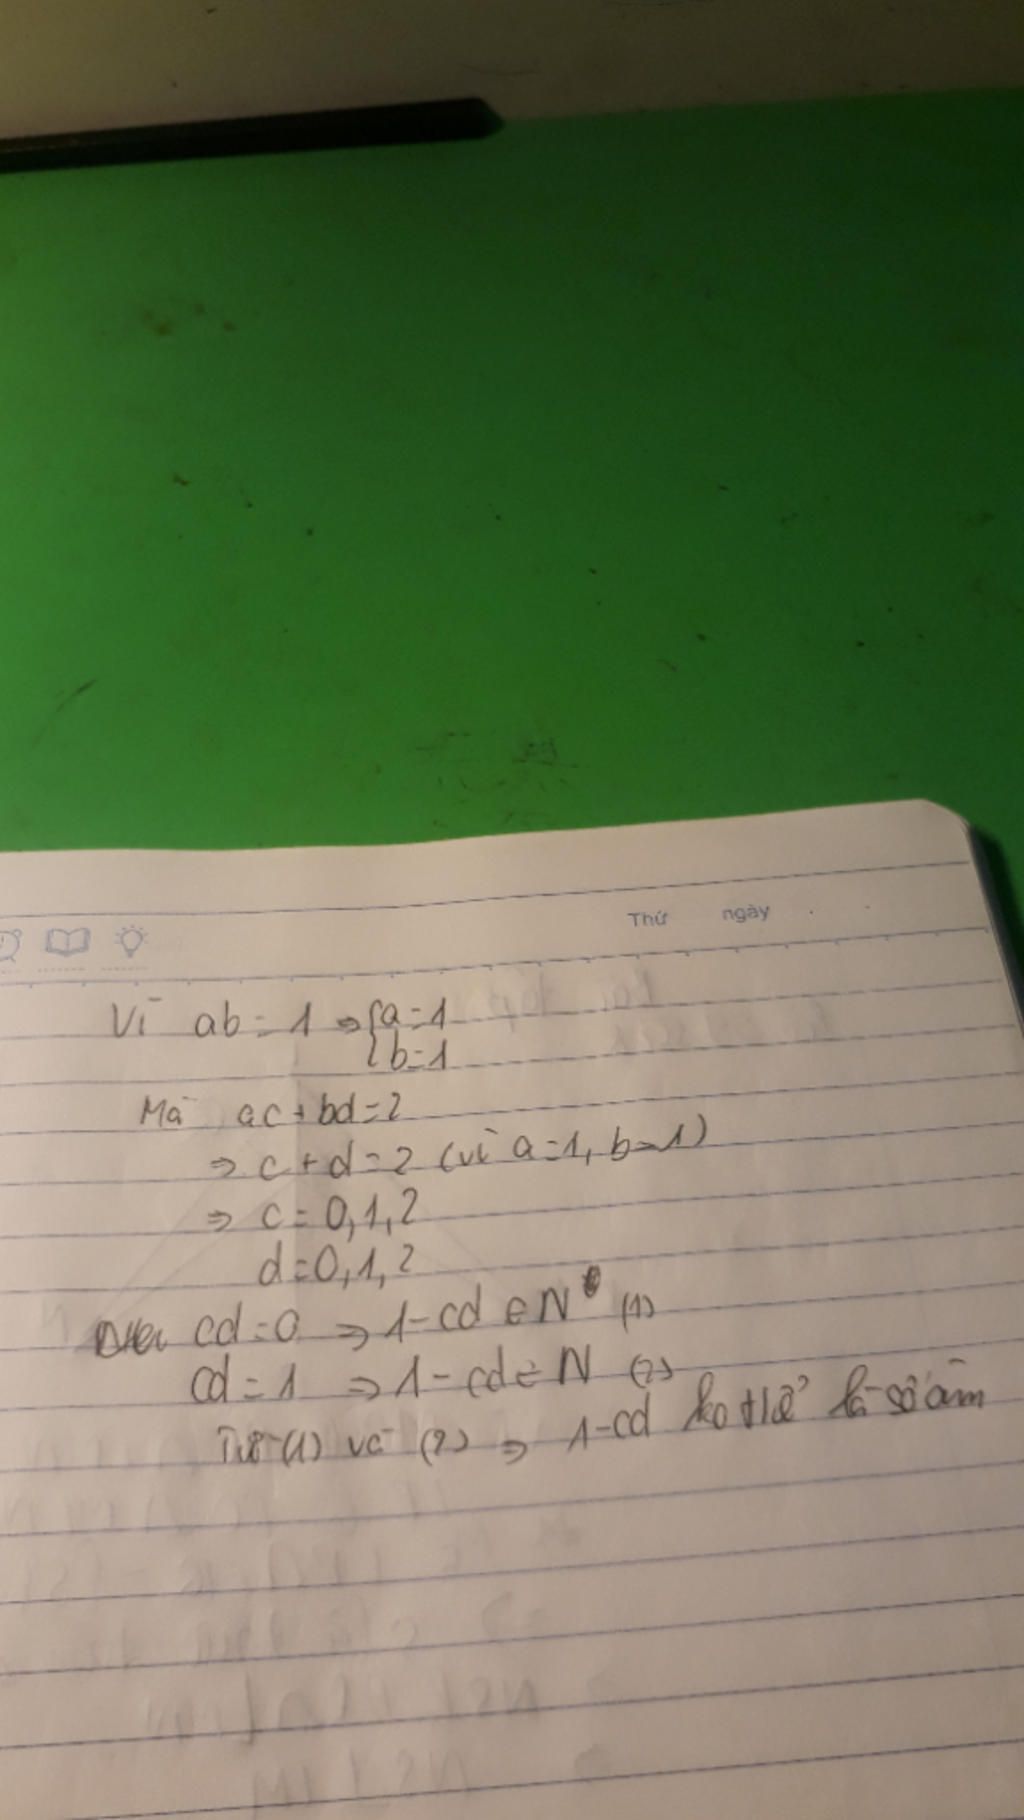 Thứ ngày
Vì ab = 1 => { a=1
b=1
Mà ac + bd = 2
=> c + d = 2 (vì a=1, b=1)
=> c = 0,1,2
d = 0,1,2
cd = 0 => 1-cd ∈ N (1)
cd = 1 => 1-cd ∈ N (2)
Từ (1) và (2) => 1-cd ko thể là số âm